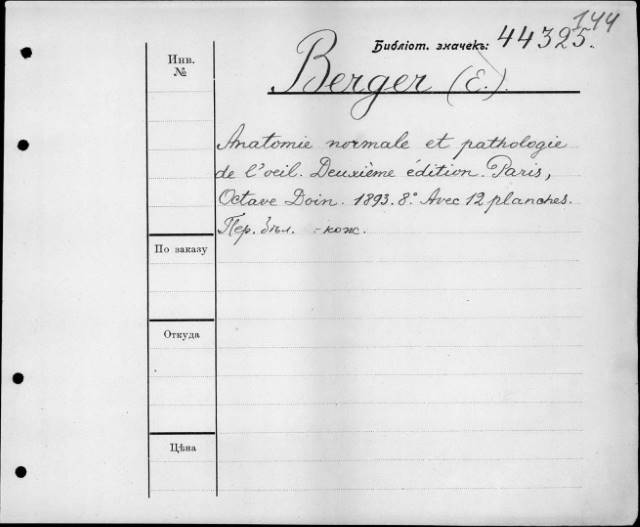 144
Библіот. значекъ: 44325.
Инв.
№
Berger (E.).
Anatomie normale et pathologie
de l'oeil. Deuxième édition. Paris,
Octave Doin. 1893. 8.° Avec 12 planches.
Пер. -кож.
По заказу
Откуда
Цѣна